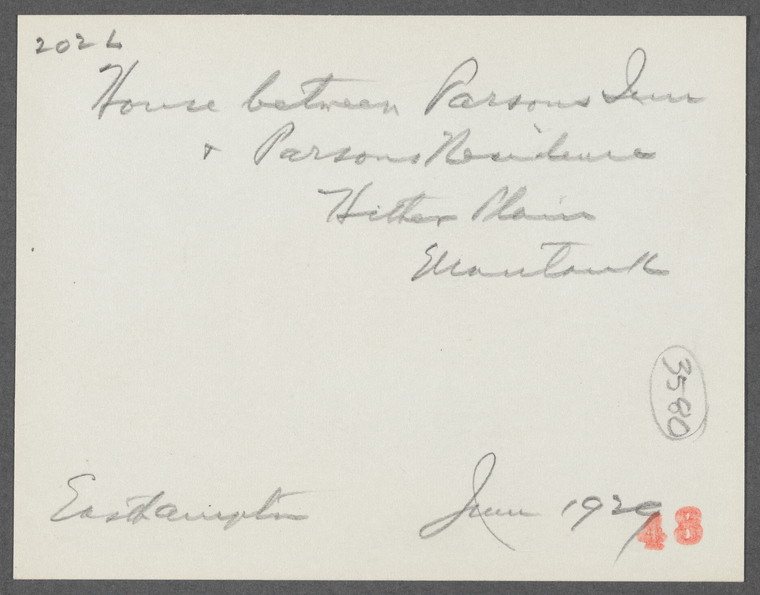 202 L
House between Parsons Inn
+ Parsons Residence
Hither Plain
Montauk
3580
Easthampton June 1929
48